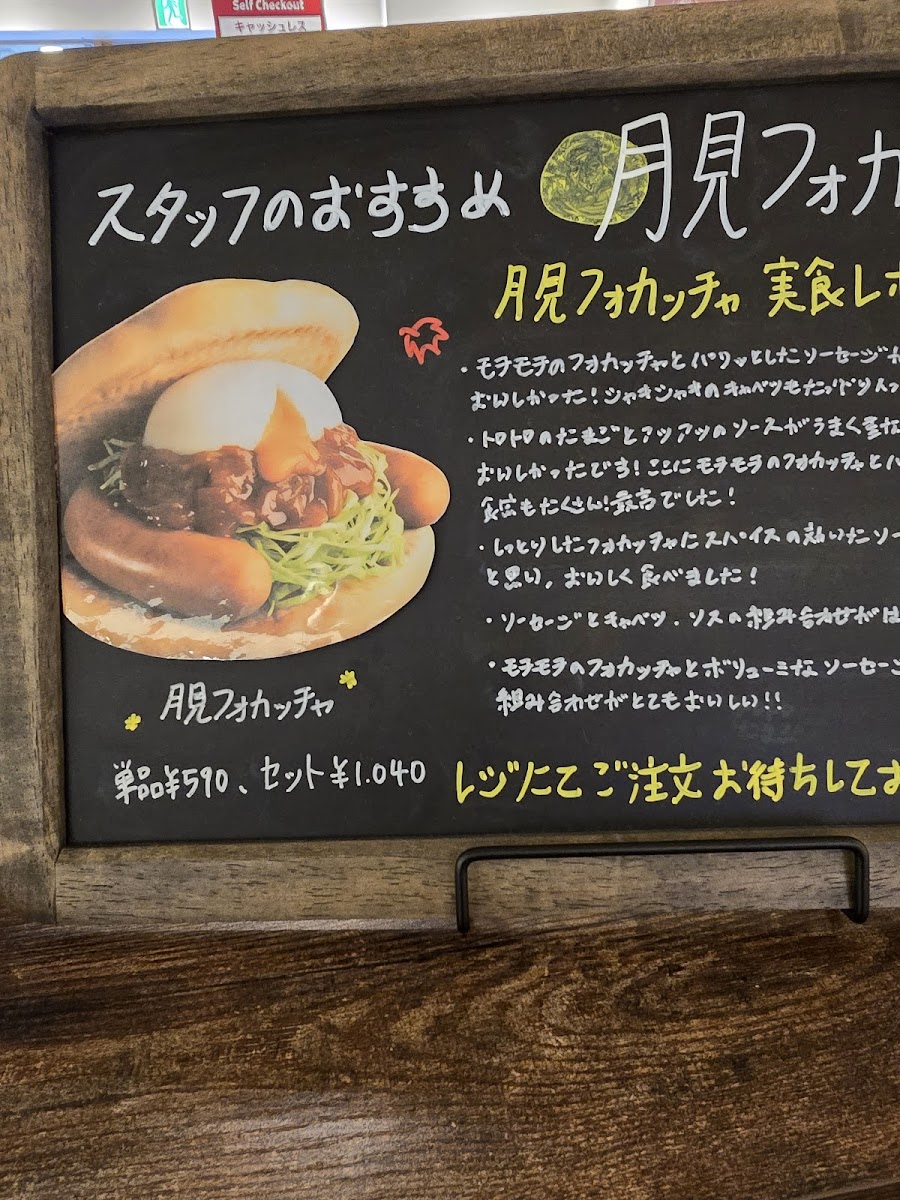 Self Checkout
キャッシュレス
スタッフのおすすめ 月見フォカ
月見フォカッチャ 実食レポ
・モチモチのフォカッチャとパリッとしたソーセージが
おいしかった！シャキシャキのキャベツもたっぷり入っ
・トロトロのたまごとアツアツのソースがうまく重な
おいしかったです！ここにモチモチのフォカッチャとパ
食感もたくさん！最高でした！
・しっとりしたフォカッチャにスパイスの効いたソー
と思い、おいしく食べました！
・ソーセージとキャベツ、ソスの組み合わせがは
・モチモチのフォカッチャとボリューミなソーセージ
組み合わせがとてもおいしい！！
月見フォカッチャ
単品¥590、セット¥1.040
レジにてご注文お待ちしてお